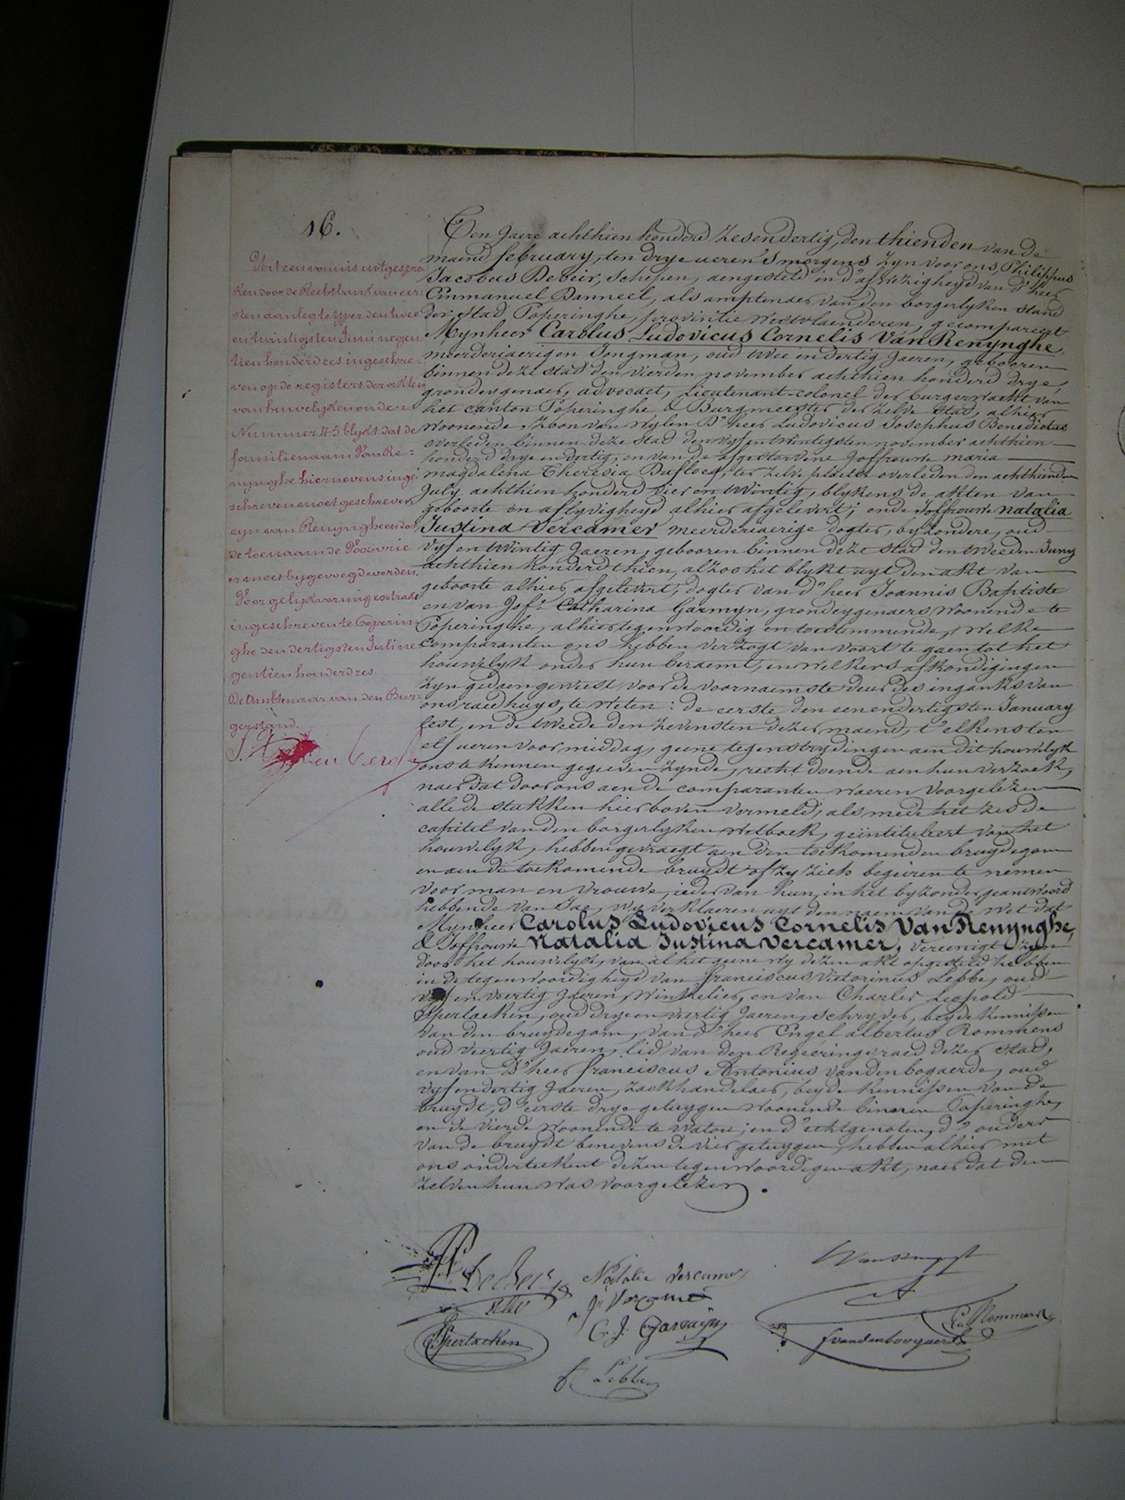 16.
Uit een vonnis uitgespro
ken door de Rechtbank van eer
sten aanleg te Ypper den twee
en twintigsten Juni negen
tien honderd zes ingeschre
ven op de registers der akten
van huwelijken onder
Nummer 45 blykt dat de
familienaam Van Re=
nynghe hiernevens inge
schreven moet geschreven
zyn van Renynghe en dat
de toenaam de Voxvrie
er moet bygevoegd worden.
Voor gelykvormig extrakt
ingeschreven te Poperin
ghe den dertigsten Juli ne
gentien honderd zes.
De Ambtenaar van den Bur
gerstand.
Den Jaere achthien honderd zesendertig, den thienden van de
maend february, ten drye ueren 's morgens zyn voor ons Philippus
Jacobus De Beir, Schepen, aengesteld in d'afwezigheyd van d'heer
Emmanuel Banneel, als amptenaer van den borgerlyken stand
der Stad Poperinghe, provintie Westvlaenderen, gecompareert
Mynheer Carolus Ludovicus Cornelis Van Renynghe,
meerderjaerigen Jongman, oud twee en dertig Jaeren, gebooren
binnen deze stad den vierden november achthien honderd drye,
grondeygenaer, advocaet, Lieutenant-colonel der burgerwacht van
het canton Poperinghe & Burgmeester der zelve stad, alhier
woonende Zoon van wylen D'heer Ludovicus Josephus Benedictus
overleden binnen deze stad den vyfentwintigsten november achthien
honderd drye en dertig, en van de afgestorvene Joffrouw maria
magdalena Theresia Dafloeg, ter zelve plaetse overleden den achthienden
July achthien honderd vier en twintig, blykens de akten van
geboorte en aflyvigheyd alhier afgelevert; ende Joffrouw Natalia
Justina Vercamer meerderjaerige dogter, byzondere, oud
vyf en twintig Jaeren, gebooren binnen deze stad den tweeden Juny
achthien honderd thien, alzoo het blykt uyt den akt van
geboorte alhier afgelevert, dogter van d'heer Joannis Baptiste
en van Jofe Catharina Garmyn, grondeygenaers woonende te
Poperinghe, alhier tegenwoordig en toestemmende, Welke
comparanten ons hebben verzogt van voort te gaen tot het
houwelyk onder hun beraemt, en welkers afkondigingen
zyn gedaen geweest voor de voornaemste deur des ingankx van
ons raedhuys, te weten: de eerste den eenendertigsten January
lest, en de tweede den zevensten dezer maend, t'elkens ten
elf ueren voor middag, geene tegenstrydingen aen dit houwelyk
ons te kennen gegeeven zynde, recht doende aen hun verzoek,
naer dat door ons aen de comparanten waeren voorgelezen
alle de stukken hier boven vermeld, als mede het zesde
capitel van den borgerlyken wetboek, geintituleert van het
houwelyk, hebben gevraegt aen den toekomenden bruydegom
en aen de toekomende bruydt of zy zich begeiren te nemen
voor man en vrouwe, ieder van hun in het byzonder geantwoord
hebbende van Jae, wy verklaeren uyt den naem van de wet dat
Mynheer Carolus Ludovicus Cornelis Van Renynghe,
& Joffrouw Natalia Justina Vercamer, vereenigt zyn
door het houwelyk, van al het geene wy dezen akt opgesteld hebben
in de tegenwoordigheyd van franciscus Victorinus Lebbe, oud
vyf en veertig Jaeren, Winkelier, en van Charles Leopold
Spertaeken, oud drye en veertig Jaeren, schryver, beyde kennissen
van den bruydegom, van d'heer Engel albertus Rommens
oud veertig Jaeren, lid van den Regeeringsraed dezer stad,
en van D'heer franciscus Antonius vandenbogaerde, oud
vyfendertig Jaeren, zaekhandelaer, beyde kennissen van de
bruydt, d'eerste drye getuygen woonende binnen Poperinghe,
en de vierde woonende te Watou; en d'echtgenoten, d'ouders
van de bruydt benevens de vier getuygen, hebben alhier met
ons onderteekent dezen tegenwoordigen akt, naer dat den
zelven hun was voorgelezen.
Natalie Vercamer
C. J. Garmyn
Spertaeken
E. a. Rommens
f vandenbogaerde
f. Lebbe